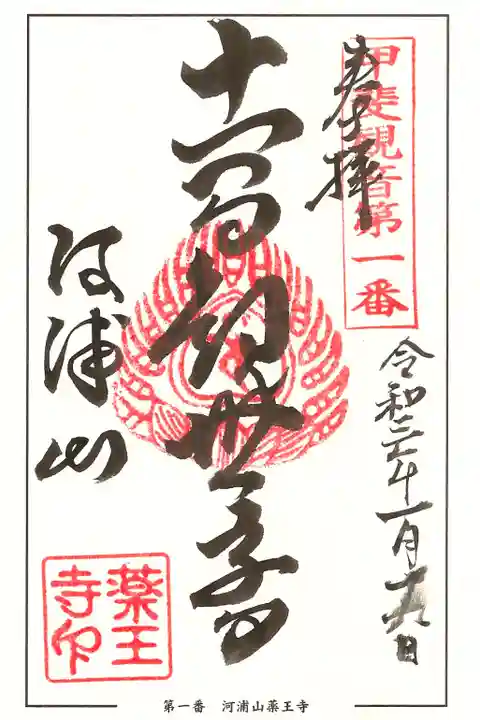 甲斐観音第一番
奉拝
令和三年一月十九日
十一面観世音
河浦山
薬王寺印
第一番 河浦山薬王寺